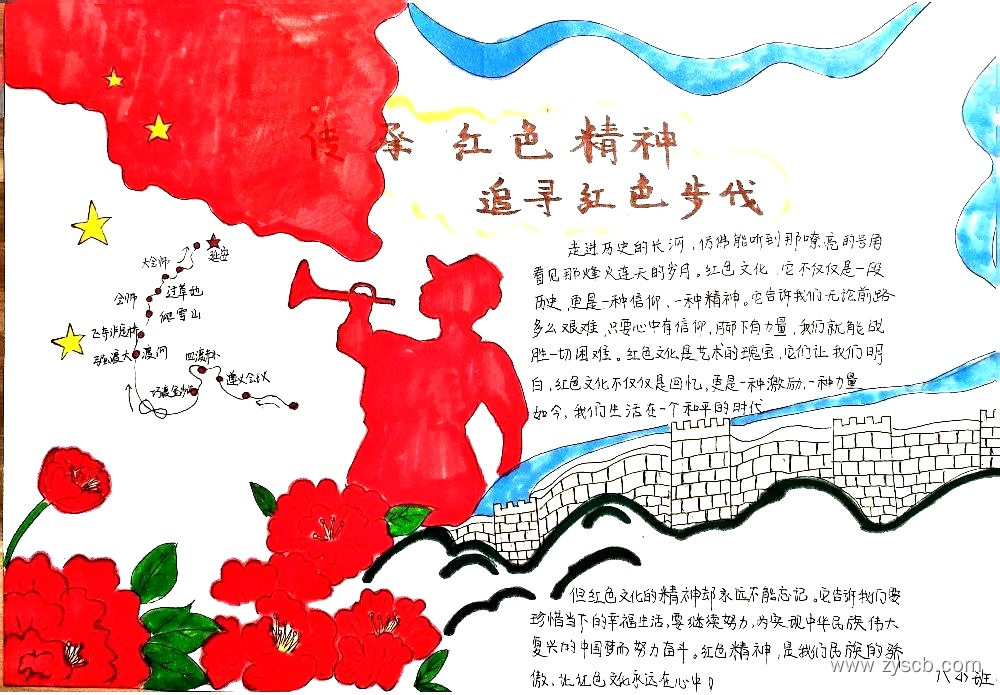 传承红色精神
追寻红色步伐
走进历史的长河，仿佛能听到那嘹亮的号角
看见那烽火连天的岁月。红色文化，它不仅仅是一段
历史，更是一种信仰，一种精神。它告诉我们无论前路
多么艰难，只要心中有信仰，脚下有力量，我们就能战
胜一切困难。红色文化是艺术的瑰宝，它们让我们明
白，红色文化不仅仅是回忆，更是一种激励，一种力量
如今，我们生活在一个和平的时代
延安
大会师
过草地
会师
爬雪山
飞夺泸定桥
强渡大渡河
四渡赤水
遵义会议
巧渡金沙江
但红色文化的精神却永远不能忘记。它告诉我们要
珍惜当下的幸福生活，要继续努力，为实现中华民族伟大
复兴的中国梦而努力奋斗。红色精神，是我们民族的骄
傲，让红色文化永远在心中！
www.zyscb.com
班